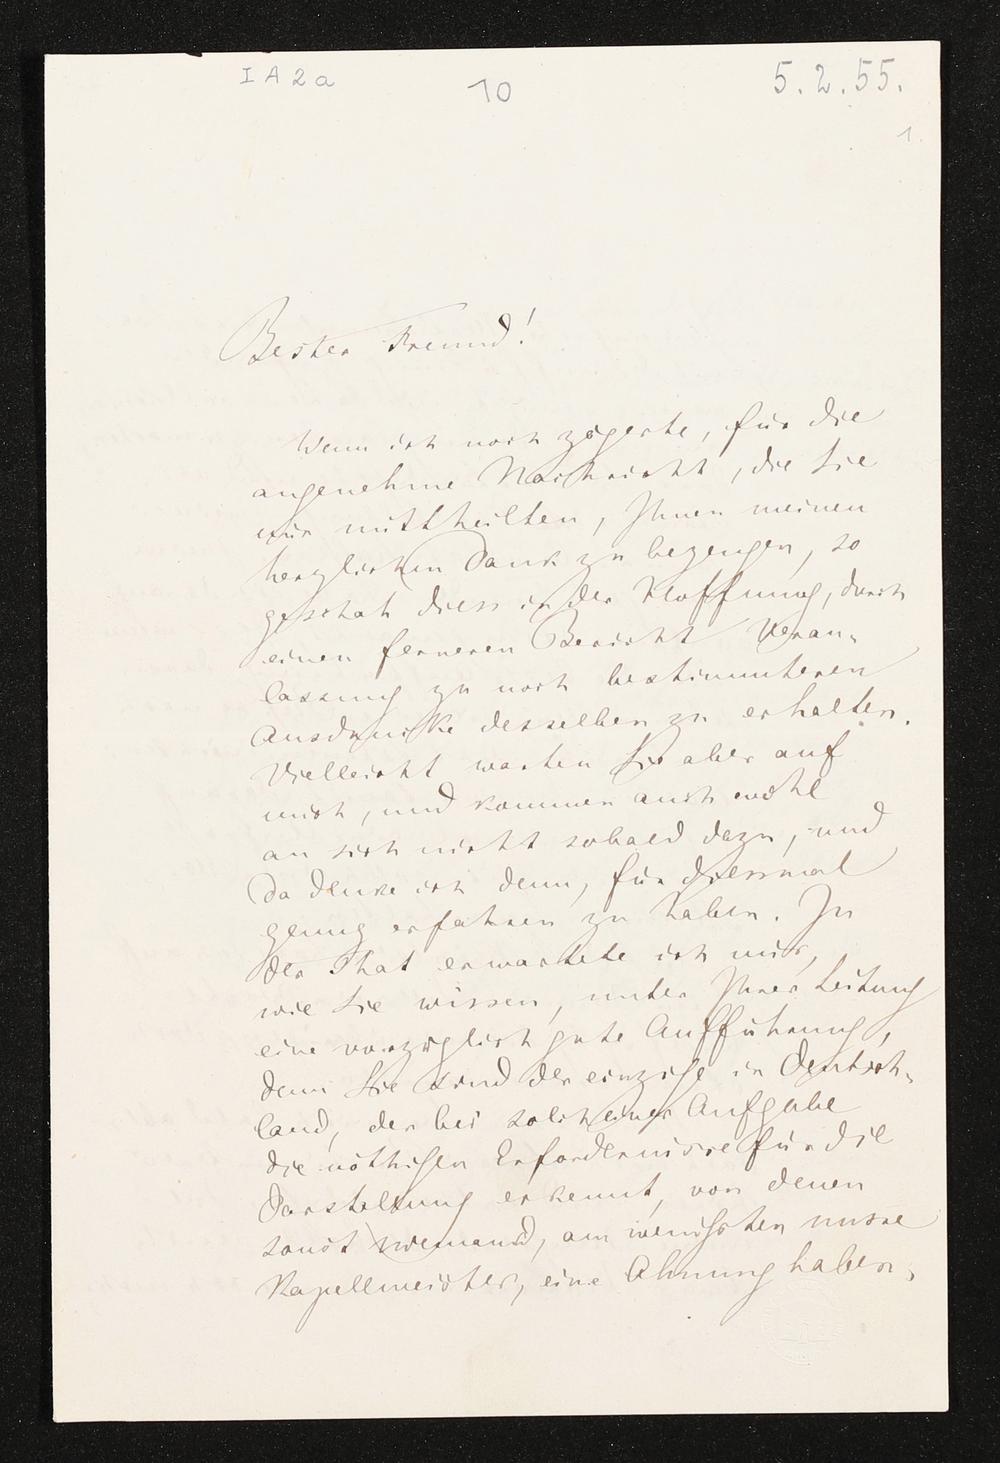 I A 2 a
10
5. 2. 55.
1.
Bester Freund!
Wenn ich noch zögerte, für die
angenehme Nachricht, die Sie
mir mittheilten, Ihnen meinen
herzlichen Dank zu bezeugen, so
geschah diess in der Hoffnung, durch
einen ferneren Bericht Veran-
lassung zu noch bestimmteren
Ausdrucke desselben zu erhalten.
Vielleicht warten Sie aber auf
mich, und kommen auch wohl
an sich nicht sobald dazu, und
da denke ich denn, für diessmal
genug erfahren zu haben. In
der That erwartete ich mir,
wie Sie wissen, unter Ihrer Leitung
eine vorzüglich gute Aufführung,
denn Sie sind der einzige in Deutsch-
land, der bei solch einer Aufgabe
die nöthigen Erfordernisse für die
Darstellung erkennt, von denen
sonst niemand, am wenigsten unsre
Kapellmeister, eine Ahnung haben,